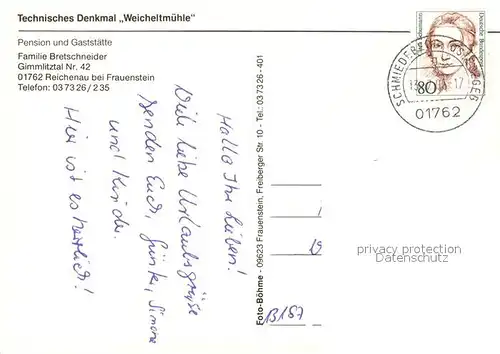 Technisches Denkmal „Weicheltmühle"
Pension und Gaststätte
Familie Bretschneider
Gimmlitztal Nr. 42
01762 Reichenau bei Frauenstein
Telefon: 03 73 26 / 2 35
Hallo Ihr Lieben!
Viele liebe Urlaubsgrüße
senden Euch, Günter, Simone
und Kinder.
Hier ist es herrlich!
Foto-Böhme - 09623 Frauenstein, Freiberger Str. 10 - Tel.: 03 73 26 - 401
Deutsche Bundespost
80
SCHMIEDEBERG
17
01762
privacy protection
Datenschutz
B187